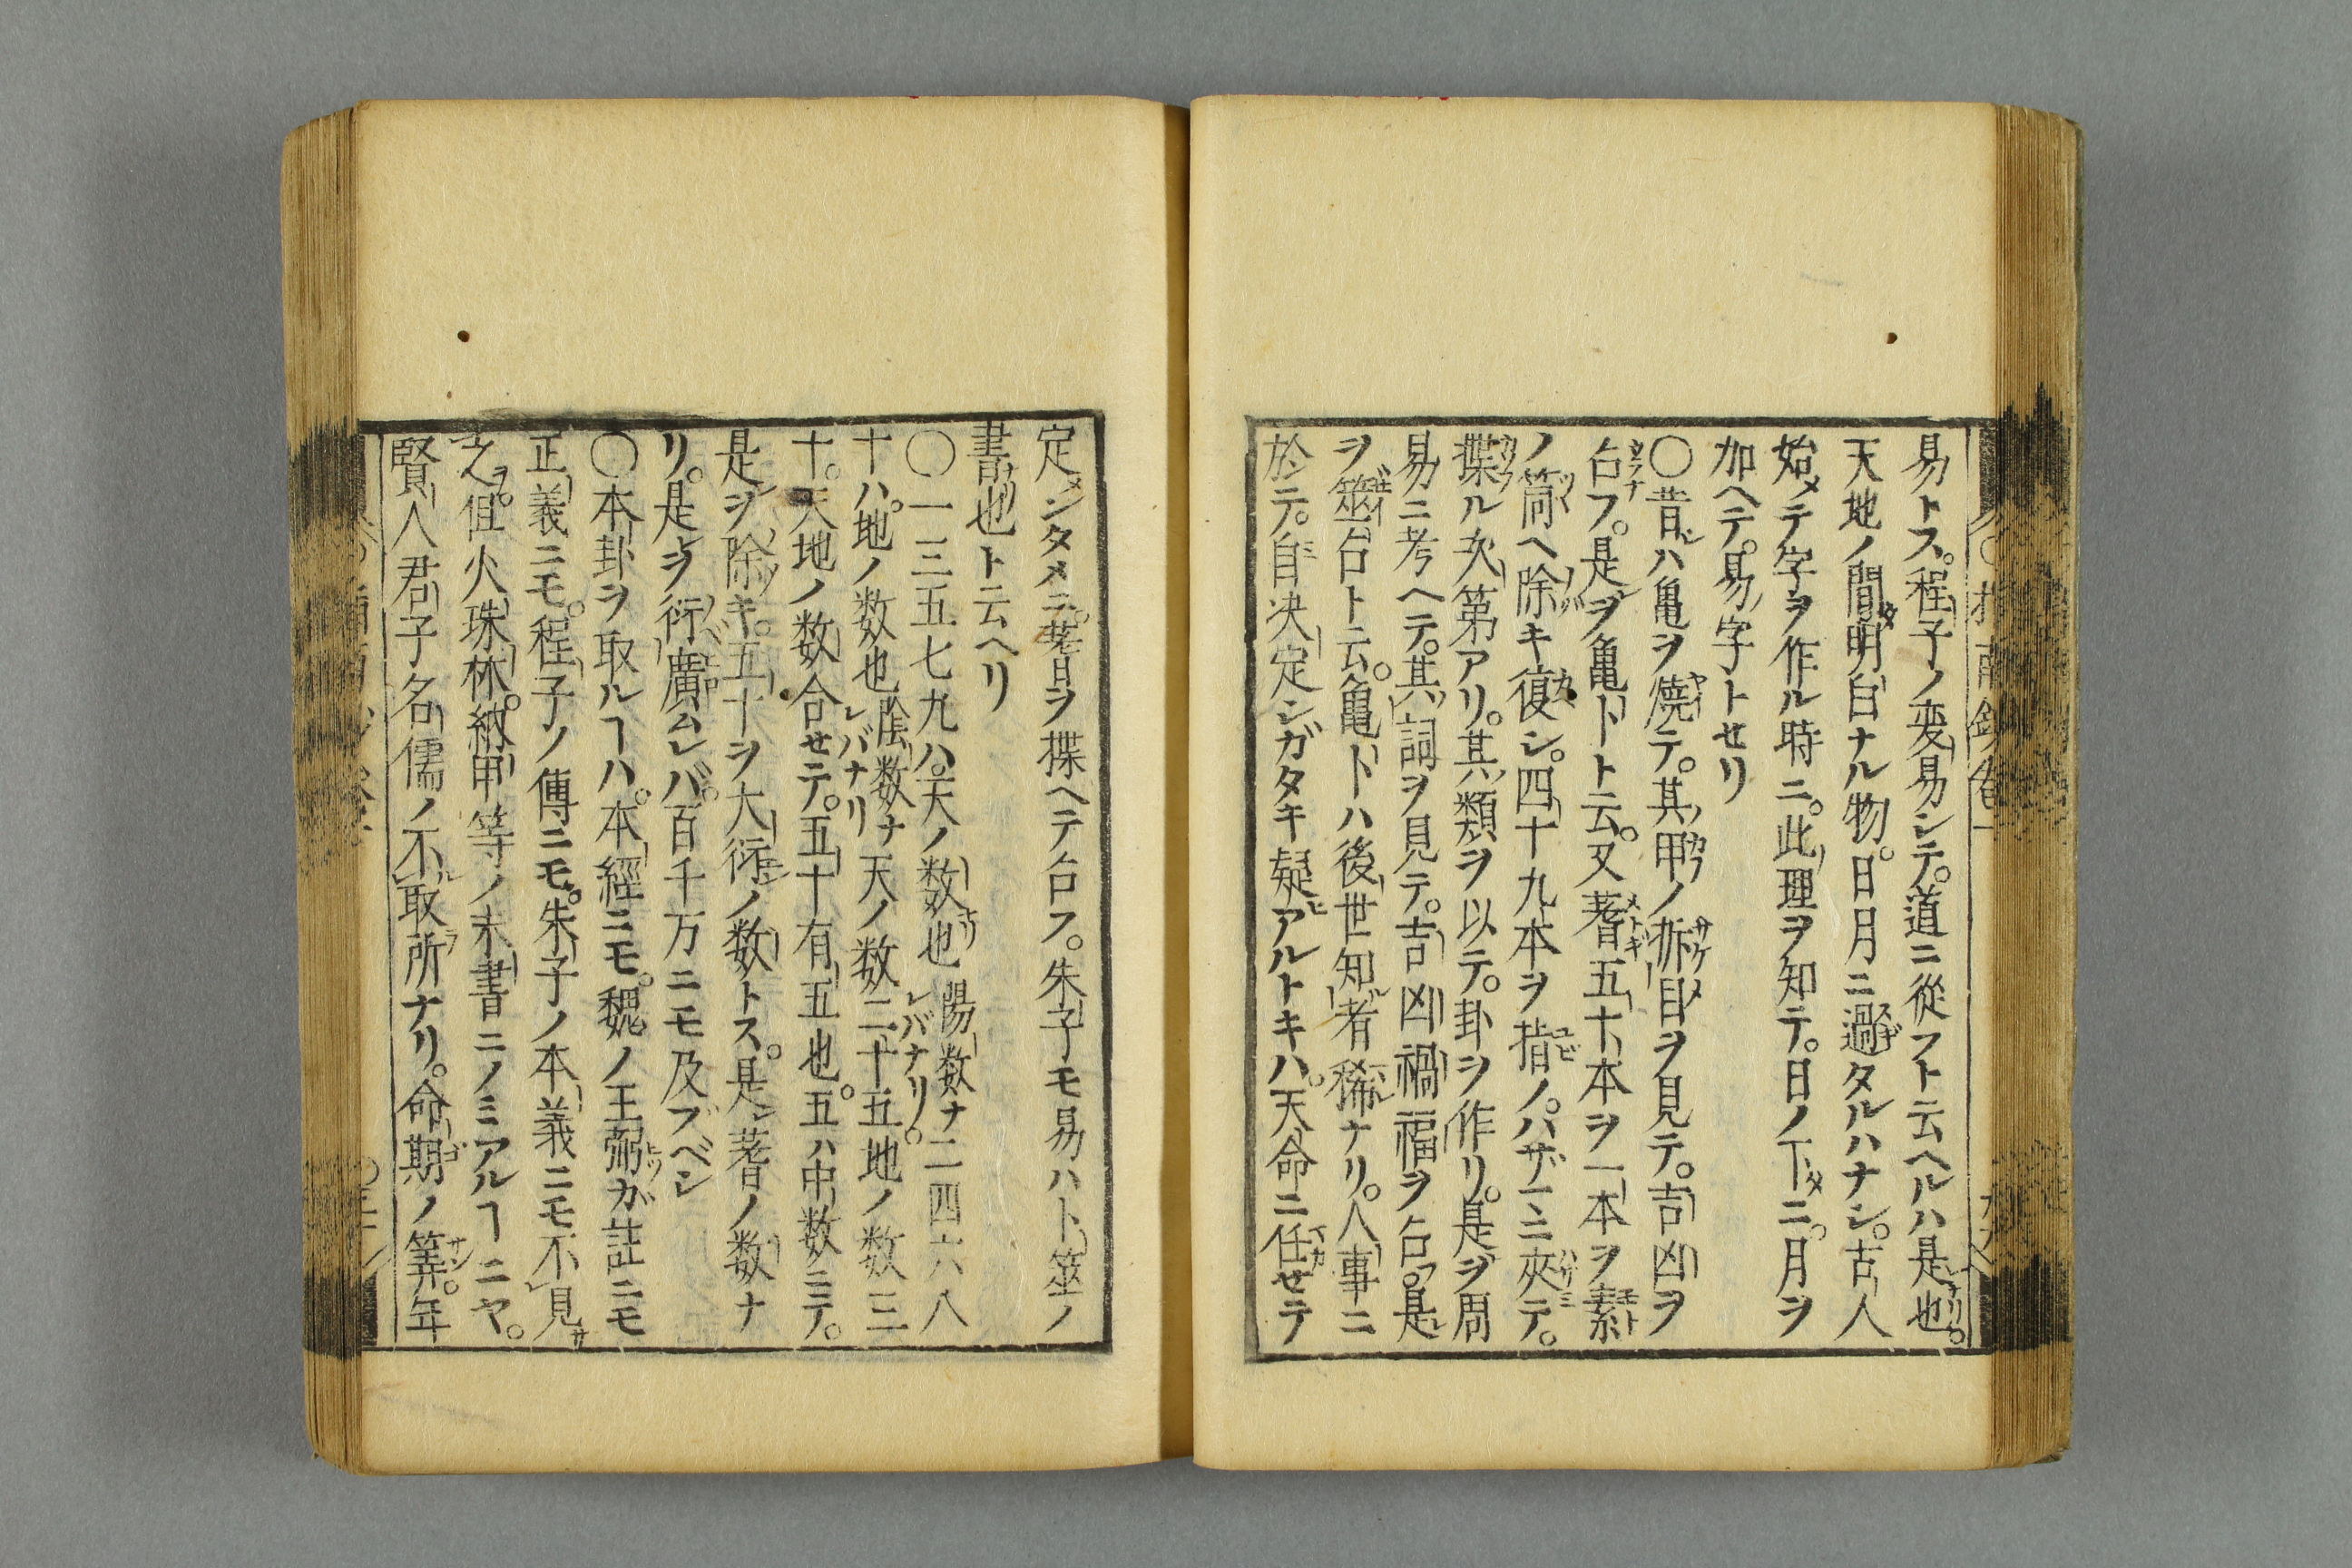 易トス。程子ノ変易シテ。道ニ從フト云ヘルハ是也。
天地ノ間明白ナル物。日月ニ過タルハナシ。古人
始メテ字ヲ作ル時ニ。此理ヲ知テ。日ノ下タニ。月ヲ
加ヘテ。易ノ字トせリ
〇昔ハ亀ヲ燒テ。其甲ノ拆目ヲ見テ。吉凶ヲ
占フ。是ヲ亀卜ト云。又蓍五十本ヲ一本ヲ素
ノ筒ヘ除キ復シ。四十九本ヲ指ノハザヿニ夾テ。
揲ル次第アリ。其類ヲ以テ。卦ヲ作リ。是ヲ周
易ニ考ヘテ。其詞ヲ見テ。吉凶禍福ヲ占。是
ヲ筮占ト云。亀卜ハ後世知者稀ナリ。人事ニ
於テ。自决定シガタキ疑アルトキハ。天命ニ任せテ
定メンタメニ。蓍ヲ揲ヘテ占フ。朱子モ易ハ卜筮ノ
書也ト云ヘリ
〇一三五七九ハ。天ノ数也陽数ナレバナリ。二四六八
十ハ。地ノ数也陰数ナレバナリ天ノ数二十五地ノ数三
十。天地ノ数合せテ。五十有五也。五ハ中数ニテ。
是ヲ除キ。五十ヲ大衍ノ数トス。是蓍ノ数ナ
リ。是ヲ衍廣ムレバ。百千万ニモ及ブベシ
〇本卦ヲ取ルヿハ。本經ニモ。魏ノ王弼ガ註ニモ
正義ニモ。程子ノ傳ニモ。朱子ノ本義ニモ不見
之ヲ。但火珠林。納甲等ノ末書ニノミアルヿニヤ。
賢人君子名儒ノ不取所ナリ。命期ノ筭。年